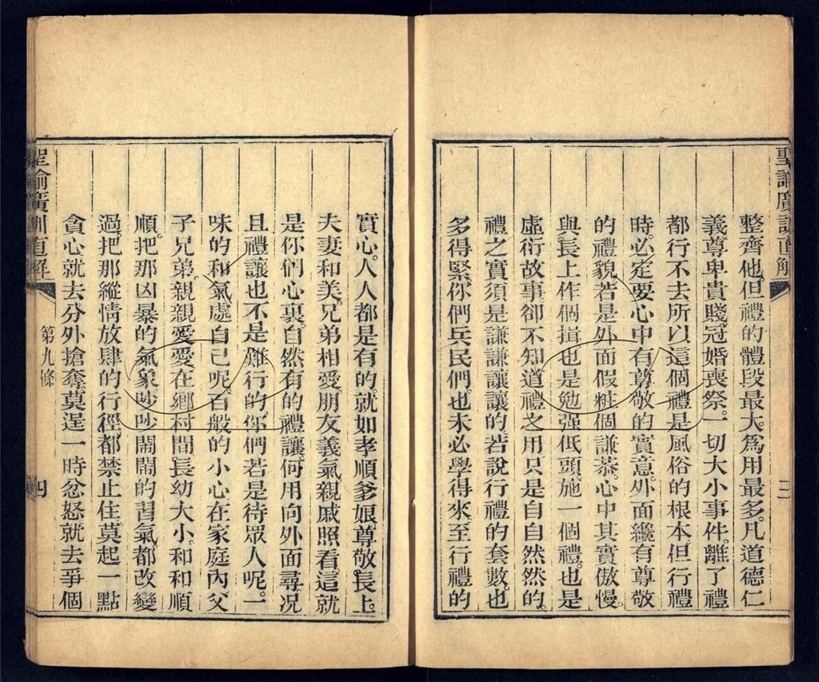 聖諭廣訓直解
三
整齊他。但禮的體段最大。為用最多。凡道德仁
義。尊卑貴賤。冠婚喪祭。一切大小事件。離了禮
都行不去。所以這個禮是風俗的根本。但行禮
時。必定要心中有尊敬的實意。外面纔有尊敬
的禮貌。若是外面假粧個謙恭。心中其實傲慢。
與長上作個揖。也是勉强低頭。施一個禮。也是
虛衍故事。卻不知道禮之用。只是自自然然的。
禮之實。須是謙謙讓讓的。若說行禮的套數。也
多得緊。你們兵民們。也未必學得來。至行禮的
實心。人人都是有的。就如孝順爹娘。尊敬長上。
夫妻和美。兄弟相愛。朋友義氣。親戚照看。這就
是你們心裏。自然有的禮讓。何用向外面尋。況
且禮讓也不是難行的。你們若是待眾人呢。一
味的和氣。處自己呢。百般的小心。在家庭內。父
子兄弟。親親愛愛。在鄉村間。長幼大小。和和順
順。把那凶暴的氣象。吵吵鬧鬧的習氣。都改變
過。把那縱情放肆的行徑。都禁止住。莫起一點
貪心。就去分外搶奪。莫逞一時忿怒。就去爭個
聖諭廣訓直解
第九條
四